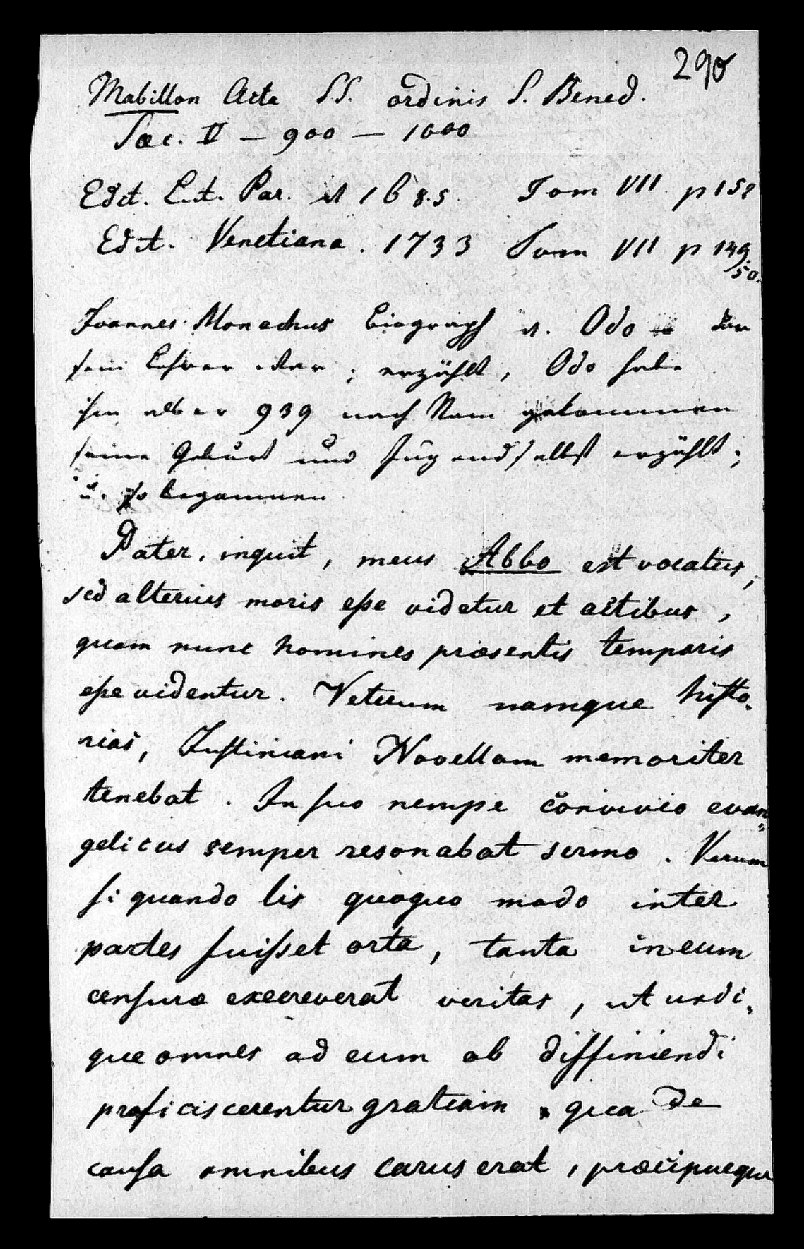 290
Mabillon Acta SS. ordinis S. Bened.
Sæc. V – 900 – 1000
Edit. Lut. Par. 1685. Tom VII p 151
Edit. Venetiana. 1733 Tom VII p 149/50.
Joannes Monachus biograph d. Odo der
sein Lehrer war; erzählt, Odo habe
ihm als er 939 nach Rom gekommen
seine Geburt und Jugend selbst erzählt;
u. so begonnen
Pater, inquit, meus Abbo est vocatus,
sed alterius moris esse videtur et actibus,
quam nunc homines præsentis temporis
esse videntur. Veterum namque histo-
rias, Justiniani Novellam memoriter
tenebat. In suo nempe convivio evan-
gelicus semper resonabat sermo. Verum
si quando lis quoquo modo inter
partes fuisset orta, tanta in eum
censuræ excreverat veritas, ut undi-
que omnes ad eum ob diffiniendi
proficiscerentur gratiam, qua de
causa omnibus carus erat, præcipueque